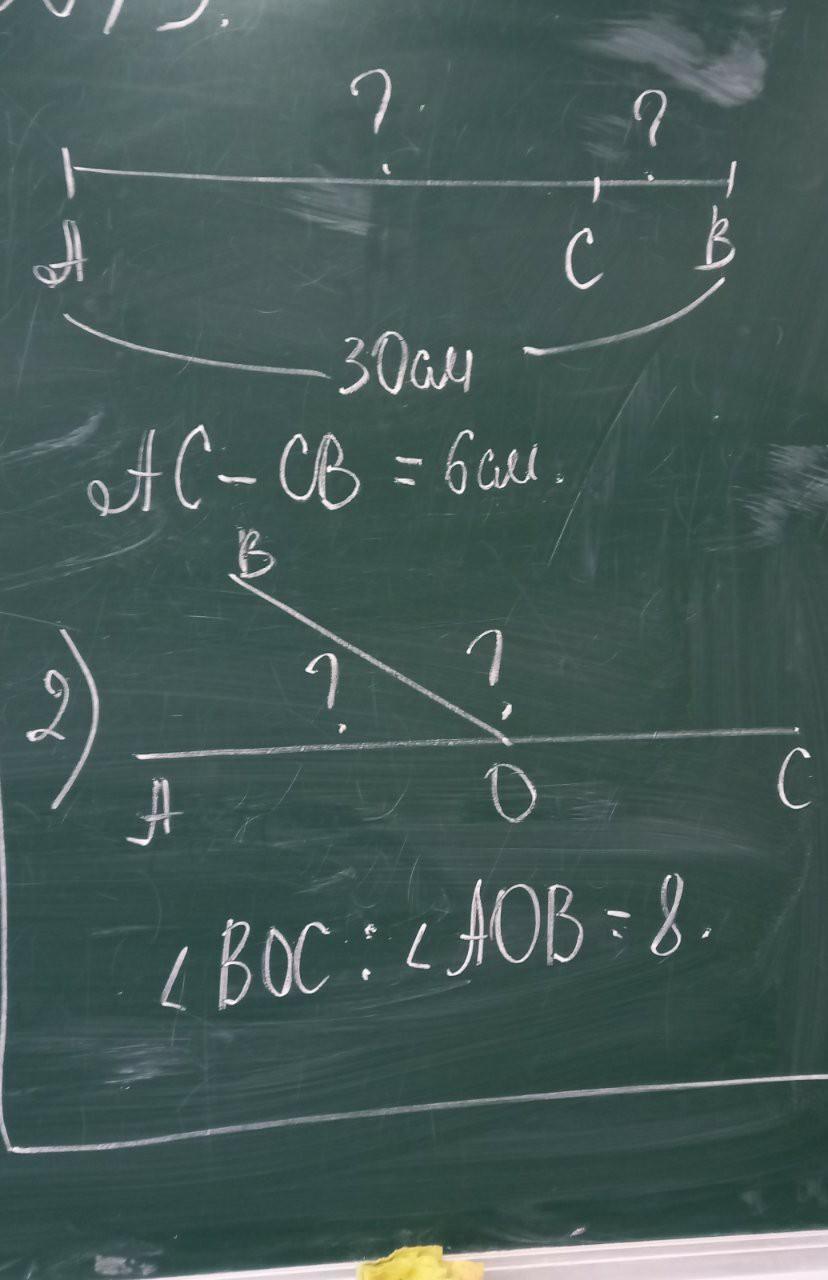 ? ?
A C B
30см
AC - CB = 6см.
B
2) ? ?
A O C
∠BOC : ∠AOB = 8.